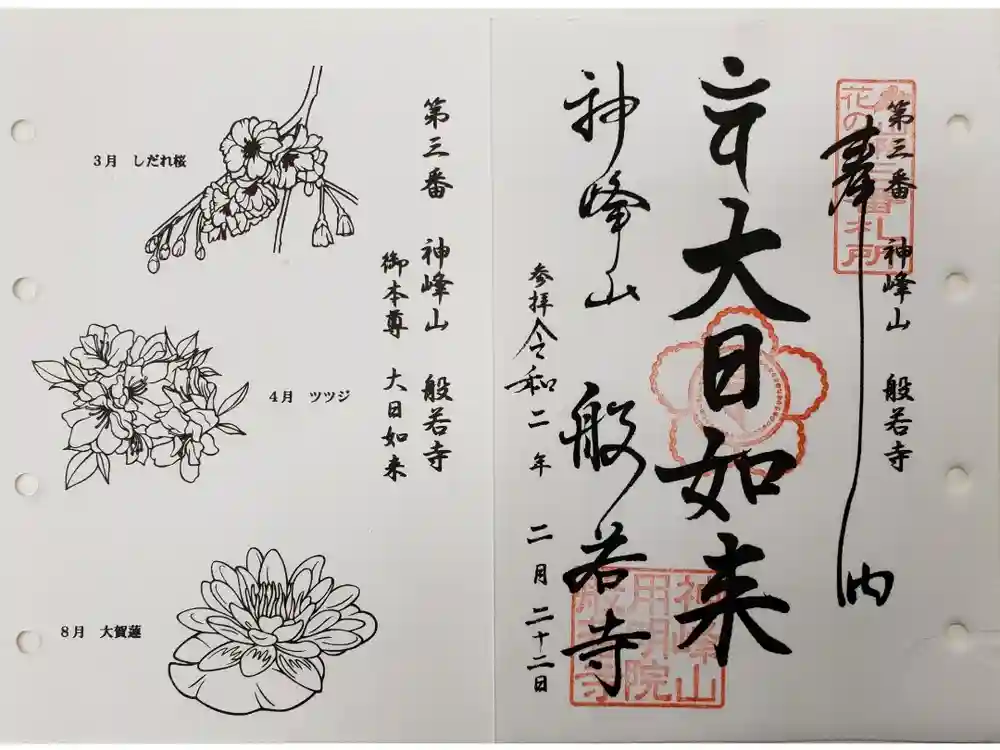 第三番 神峰山 般若寺
奉
納
大日如来
神峰山 般若寺
参拝 令和二年 二月二十二日
神峰山
用明院
般若寺
第三番 神峰山 般若寺
御本尊 大日如来
3月 しだれ桜
4月 ツツジ
8月 大賀蓮